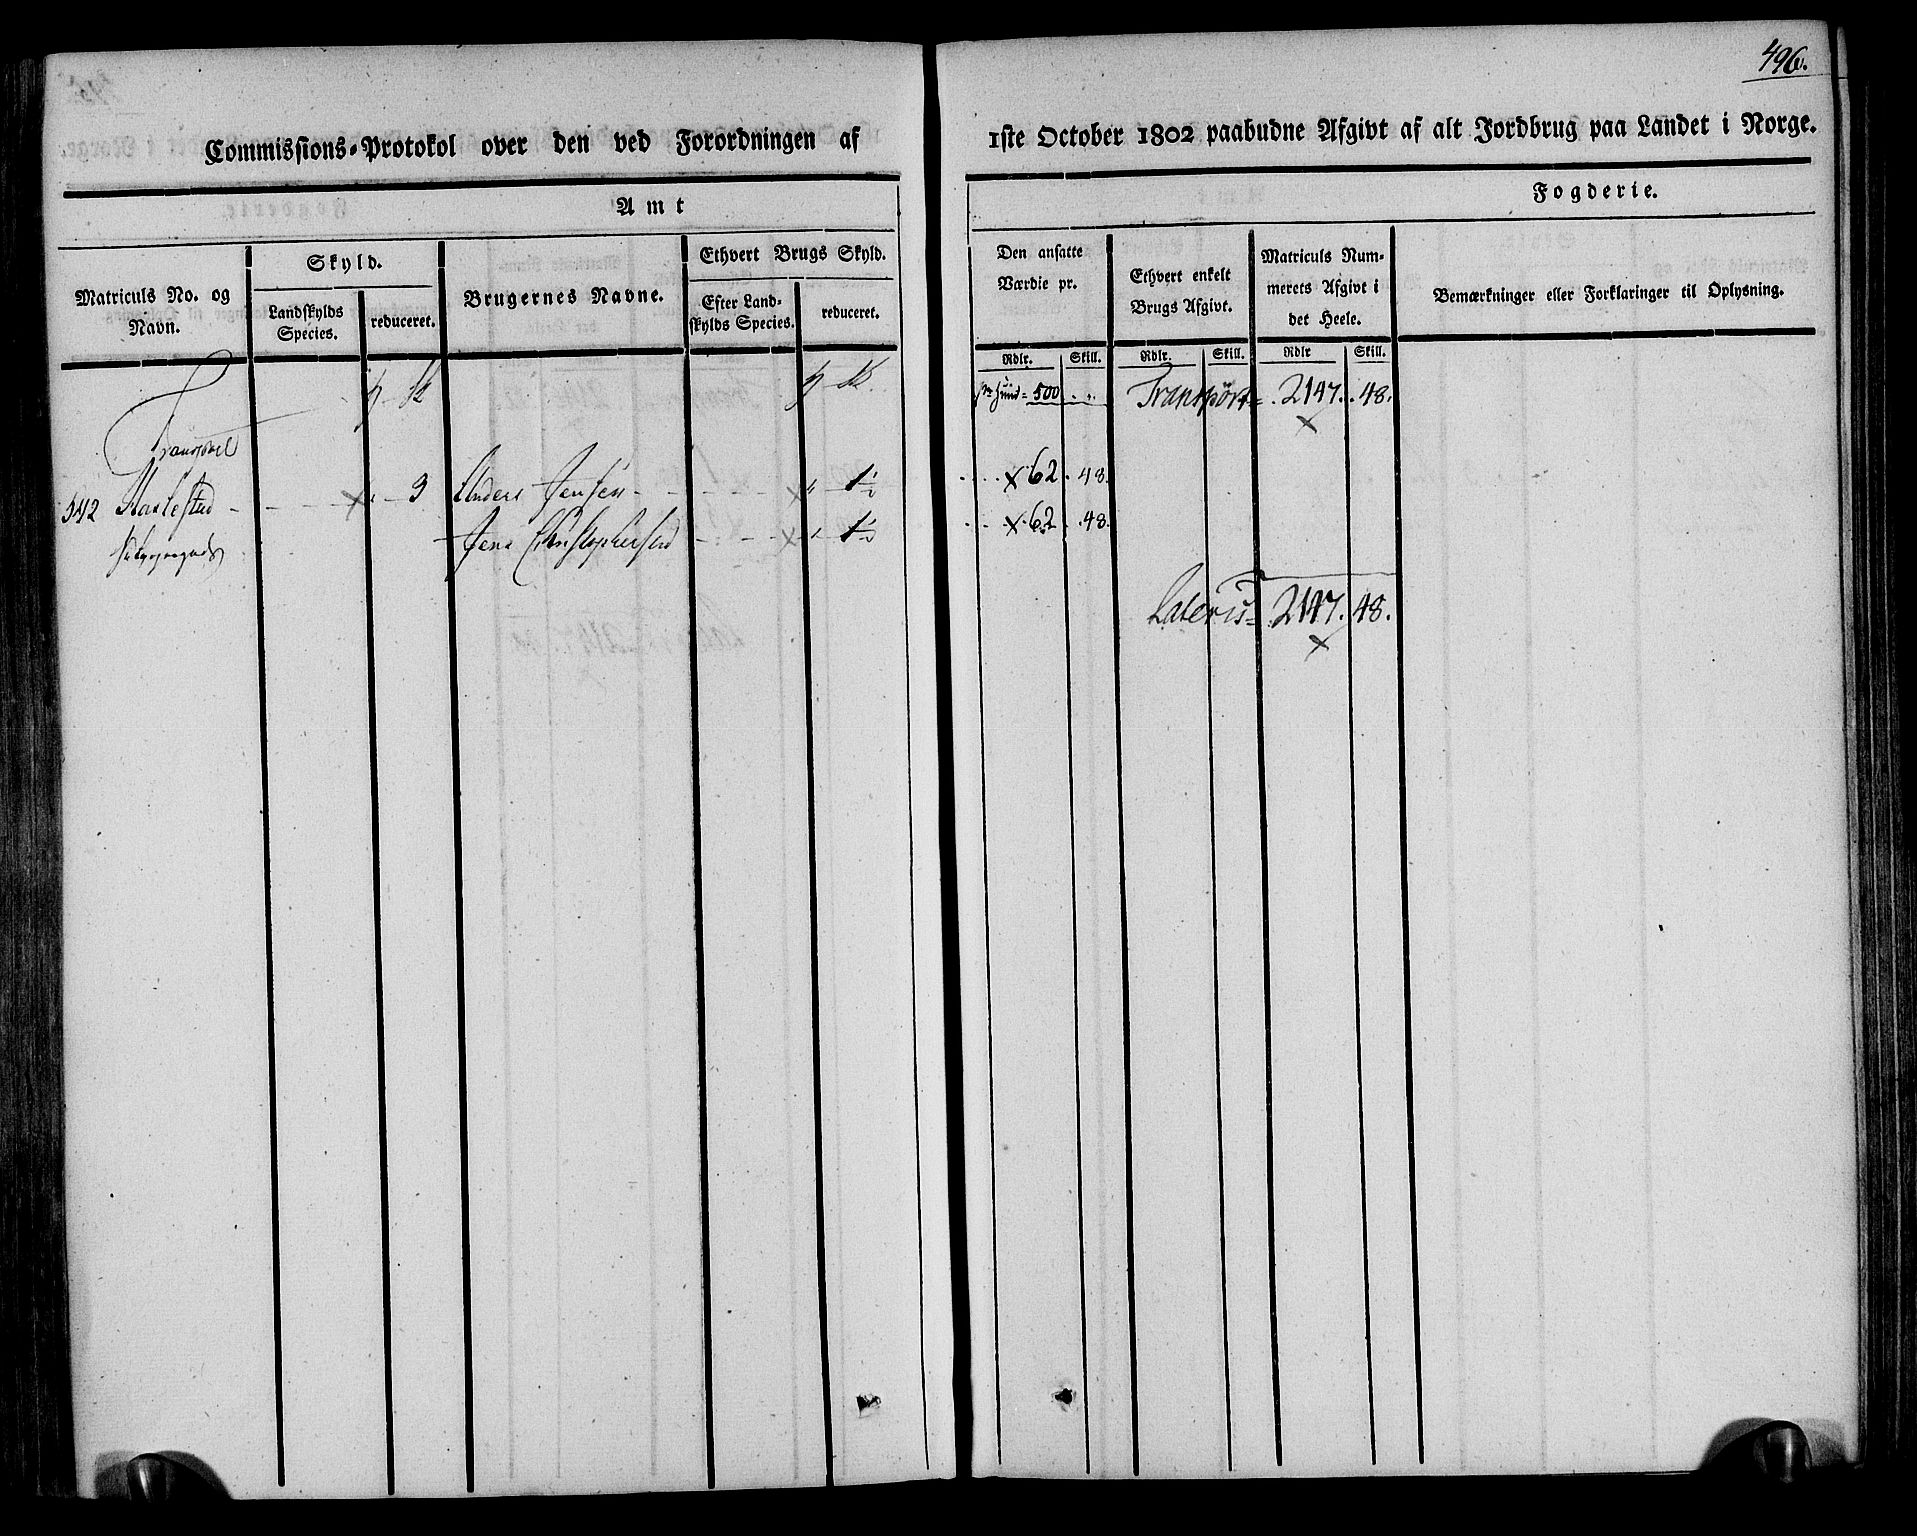 496.
Commissions-Protokol over den ved Forordningen af 1ste October 1802 paabudne Afgivt af alt Jordbrug paa Landet i Norge.
Amt
Fogderie.
Matriculs No. og Navn.
Skyld.
Landskylds Species.
reduceret.
Brugernes Navne.
Ethvert Brugs Skyld.
Efter Landskylds Species.
reduceret.
Den ansatte Værdie pr.
Ethvert enkelt Brugs Afgivt.
Matriculs Nummerets Afgivt i det Heele.
Bemærkninger eller Forklaringer til Oplysning.
Rdlr. Skill. Rdlr. Skill. Rdlr Skill.
500 Transport= 2147. 48.
Transport
3 Anders Jensen 1½ 62. 48.
Jens Christophersen 1½ 62. 48.
Lateris= 2147. 48.